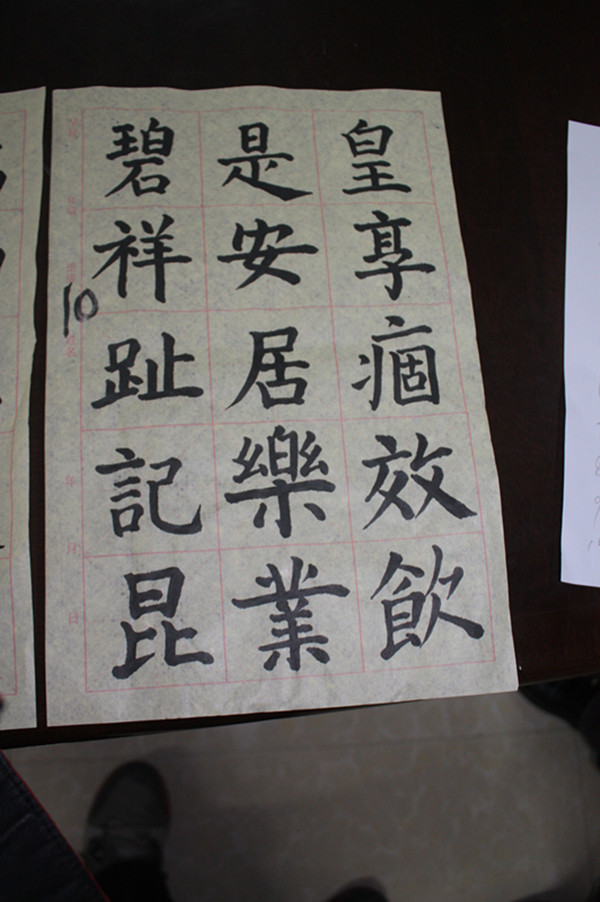 皇享痼效飲
是安居樂業
碧祥趾記昆
10